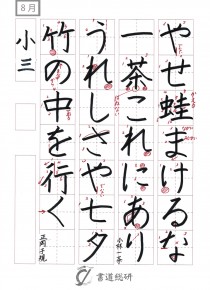 8月
やせ蛙まけるな
一茶これにあり
小林一茶
うれしさや七夕
竹の中を行く
正岡子規
小三
書道総研